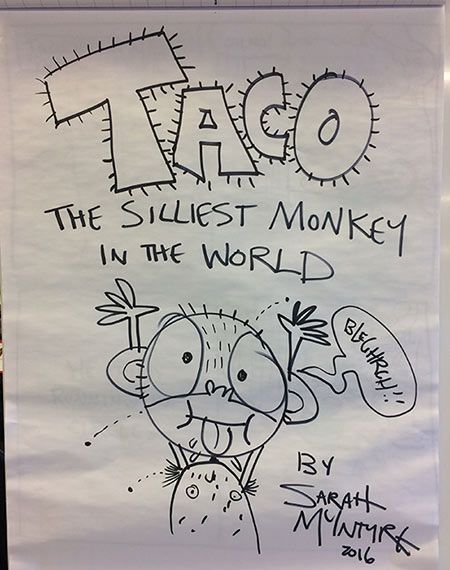 TACO
THE SILLIEST MONKEY
IN THE WORLD
BLEGHRGH!!
BY
SARAH
MCINTYRE
2016